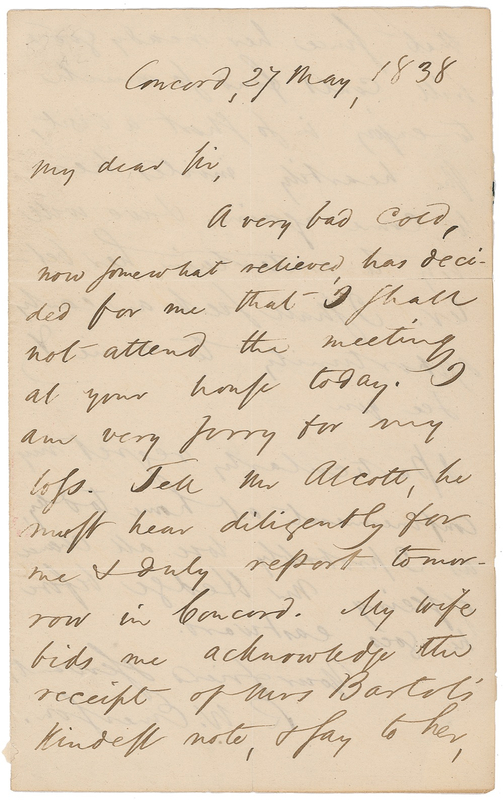 Concord, 27 May, 1838
My dear Sir,
A very bad cold,
now somewhat relieved, has deci-
ded for me that I shall
not attend the meeting
at your house today. I
am very sorry for my
loss. Tell Mr Alcott, he
must hear diligently for
me & duly report tomor-
row in Concord. My wife
bids me acknowledge the
receipt of Mrs Bartol's
kindest note, & say to her,